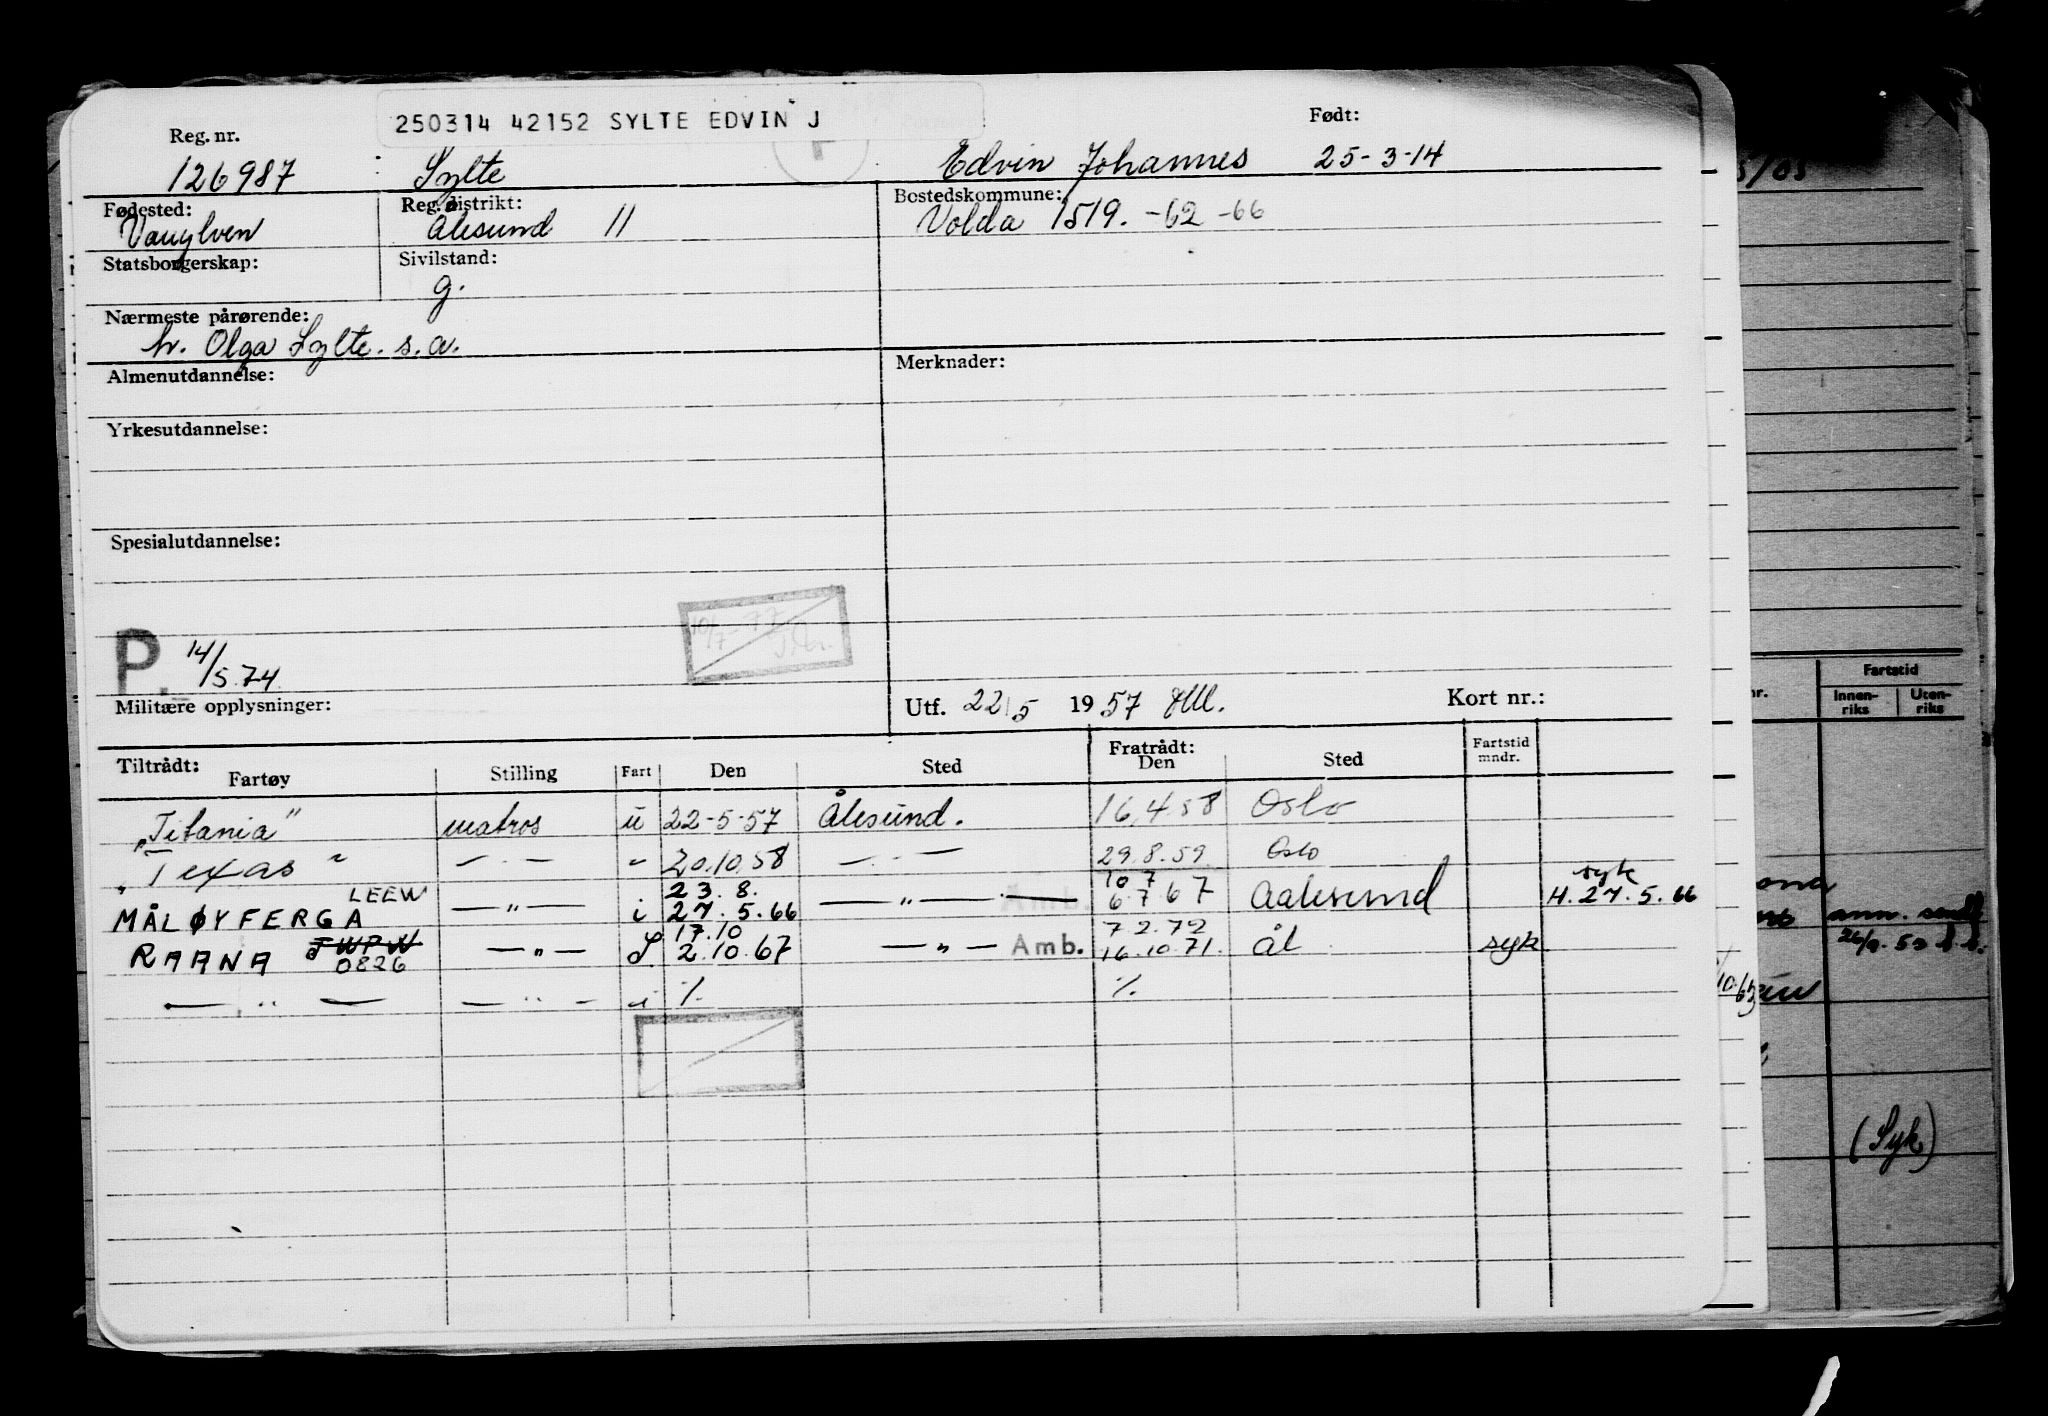 250314 42152 SYLTE EDVIN J
Reg. nr. Født:
126987 Sylte Edvin Johannes 25-3-14
Fødested: Reg. distrikt: Bostedskommune:
Vanylven Ålesund 11 Volda 1519. -62 -66
Statsborgerskap: Sivilstand:
g.
Nærmeste pårørende:
h. Olga Sylte. s.a.
Almenutdannelse: Merknader:
Yrkesutdannelse:
Spesialutdannelse:
P. 14/5.74
Militære opplysninger: Utf. 22/5 1957 Kort nr.:
Tiltrådt: Fratrådt: Fartstid
Fartøy Stilling Fart Den Sted Den Sted mndr.
"Titania" matros u 22-5-57 Ålesund. 16.4.58 Oslo
"Texas" — . — " 20.10.58 — . — 29.8.59 Oslo
LEEW 23.8. 10 7 syk
MÅLØYFERGA — " — i 27.5.66 — " — Amb. 6.7.67 Aalesund H.27.5.66
17.10 7.2.72
RAANA JWPW — " — S 2.10.67 — " — Amb. 16.10.71. Ål syk
0826
— " — — " — i %. %.
Fartstid
nr. Innen-riks Uten-riks
ann. sendt
26/9.53
10.65
(Syk)